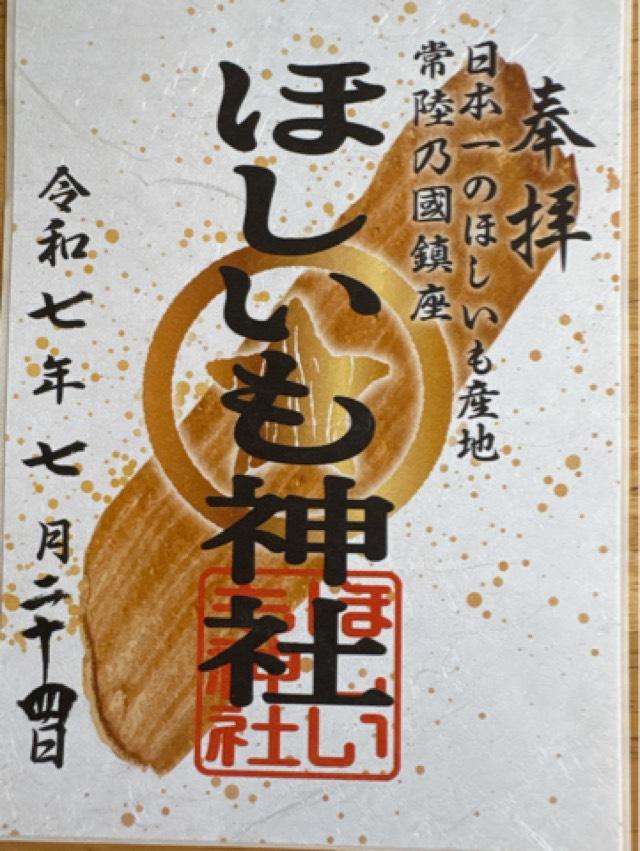 奉拝
日本一のほしいも産地
常陸乃國鎮座
ほしいも神社
ほしい
も神社
令和七年七月二十四日